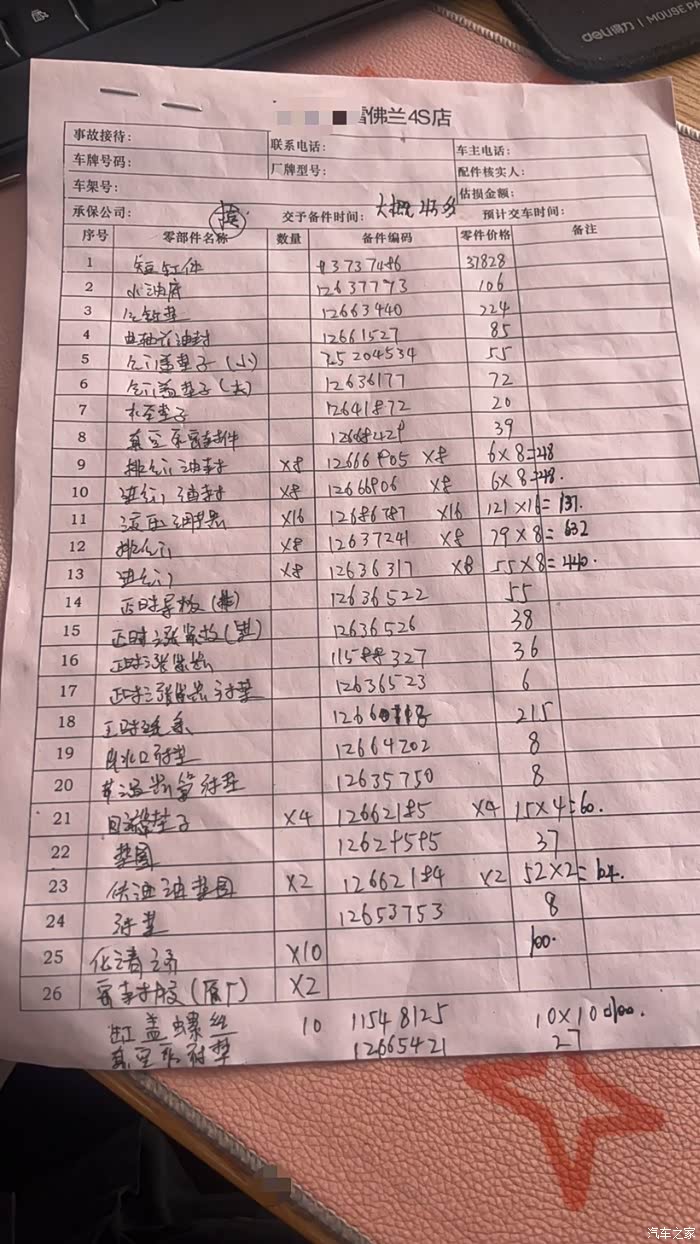 雪佛兰4S店
事故接待： 联系电话： 车主电话：
车牌号码： 厂牌型号： 配件核实人：
车架号： 估损金额：
承保公司： 交予备件时间： 大概 预计交车时间：
序号 零部件名称 数量 备件编码 零件价格 备注
1 短缸体 93737486 37828
2 水油底 12637773 106
3 缸垫 12663440 224
4 曲轴前油封 12661527 85
5 气门盖垫子（小） 25204534 55
6 气门盖垫子（大） 12636177 72
7 水泵垫子 12641872 20
8 真空泵密封件 12668429 39
9 排气门油封 ×8 12666905 ×8 6×8=48
10 进气门油封 ×8 12666906 ×8 6×8=48.
11 液压 ×16 12686787 ×16 121×16=
12 排气门 ×8 12637241 ×8 79×8=632
13 进气门 ×8 12636317 ×8 55×8=440.
14 正时导板 12636522 55
15 正时涨紧板 12636526 38
16 正时涨紧器 11588327 36
17 正时涨紧器衬垫 12636523 6
18 正时链条 215
19 出水口衬垫 12664202 8
20 节温器 衬垫 12635750 8
21 垫子 ×4 12662185 ×4 15×4=60.
22 垫圈 12629595 37
23 供油 垫圈 ×2 12662184 ×2 52×2=
24 衬垫 12653753 8
25 化清济 ×10 100.
26 密封胶（原厂） ×2
缸盖螺丝 10 11548125 10×10=100.
真空泵衬垫 12665421 27
deli得力 MOUSE PA
汽车之家